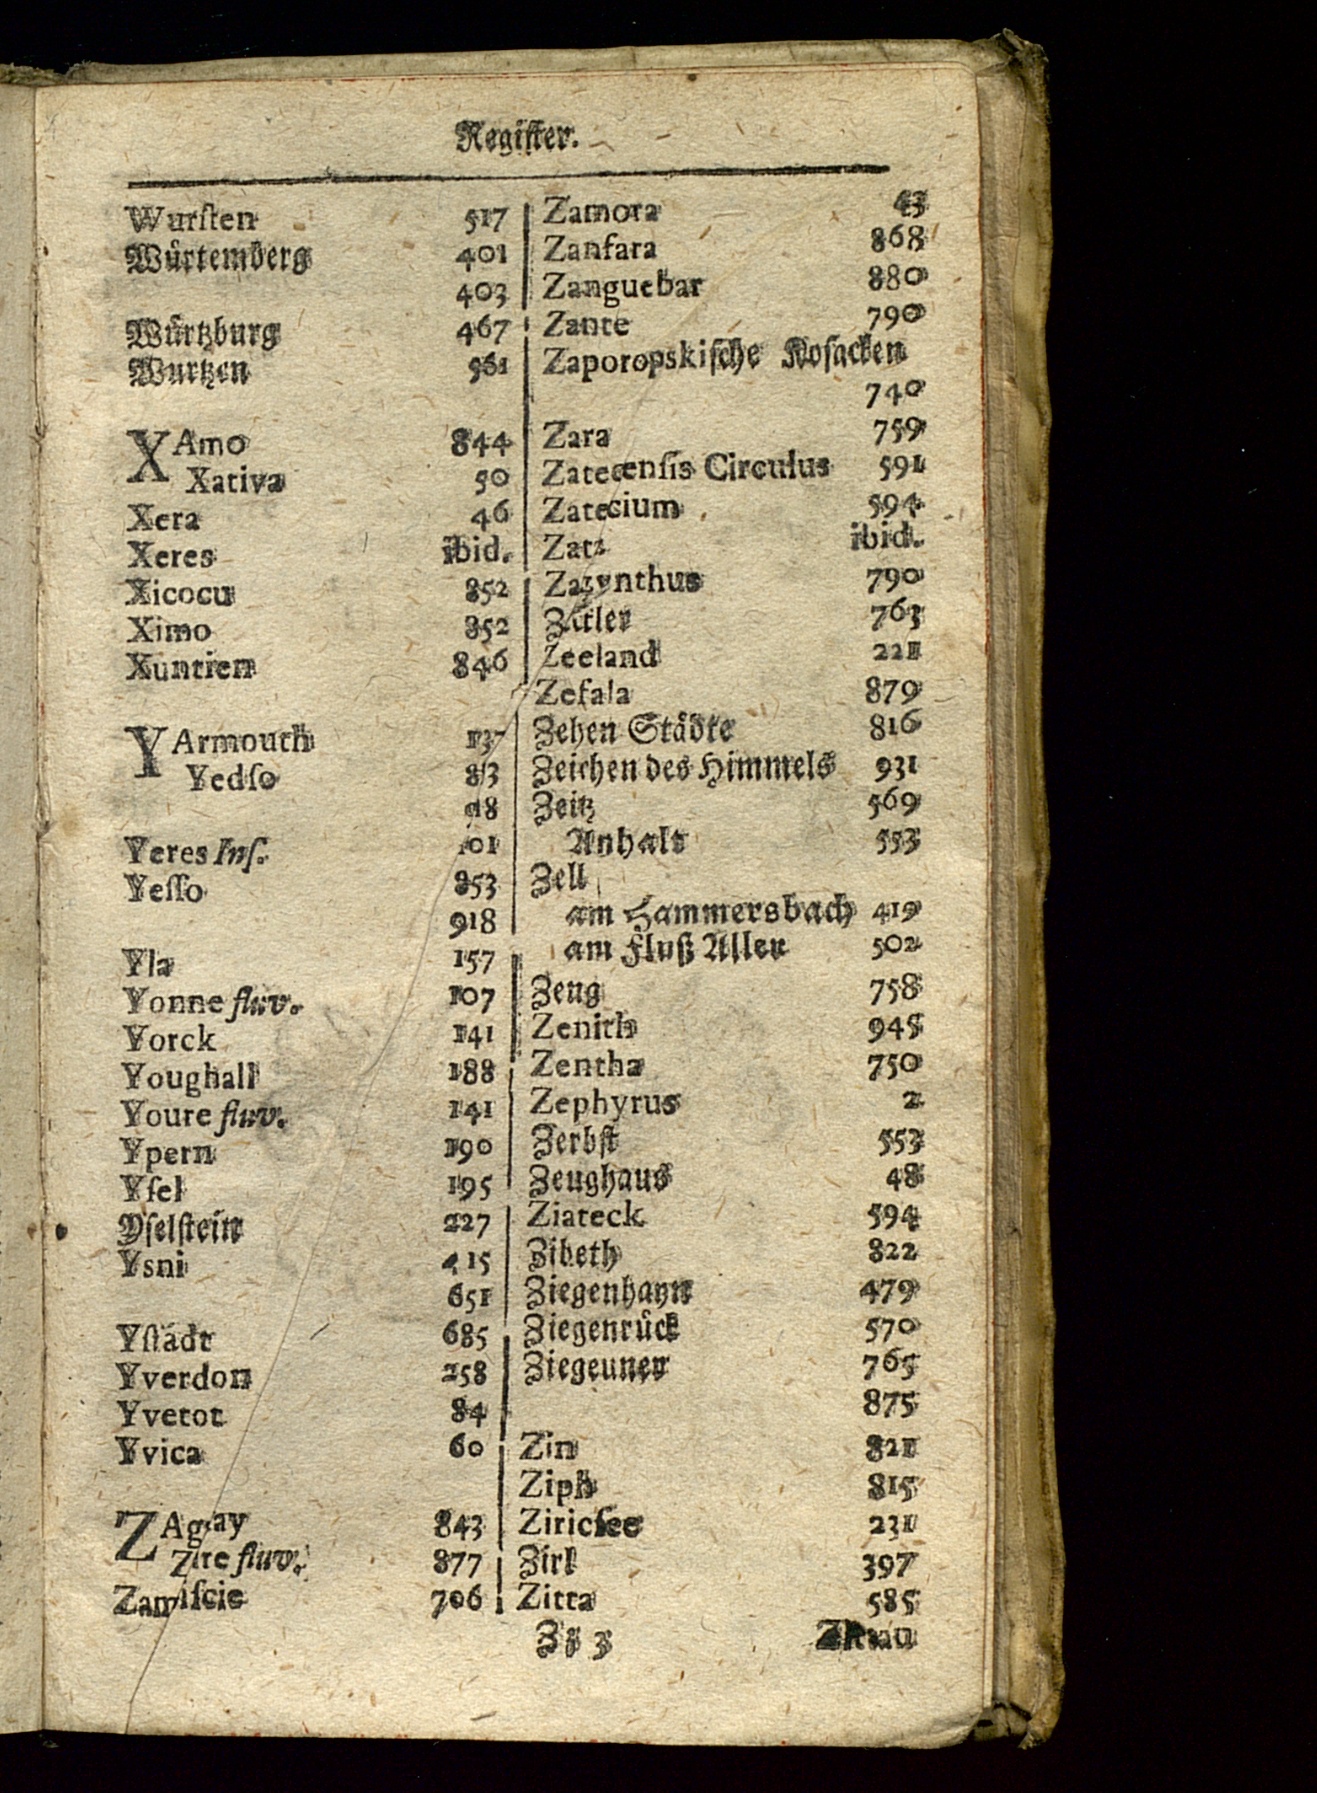 Regiſter.
Wurſten 517
Wuͤrtemberg 401
403
Wuͤrtzburg 467
Wurtzen 561
XAmo 844
Xativa 50
Xera 46
Xeres ibid.
Xicocu 852
Ximo 852
Xuntien 846
YArmouth 137
Yedſo 853
918
Yeres Inſ. 101
Yeſſo 853
918
Yla 157
Yonne fluv. 107
Yorck 141
Youghall 188
Youre fluv. 141
Ypern 190
Yſel 195
Yſelſtein 227
Ysni 415
651
Yſtådt 685
Yverdon 258
Yvetot 84
Yvica 60
ZAgay 843
Zire fluv. 877
Zamiſcie 706
Zamora 43
Zanfara 868
Zanguebar 880
Zante 790
Zaporopskiſche Koſacken
740
Zara 759
Zatecenſis Circulus 591
Zatecium 594
Zatz ibid.
Zazynthus 790
Zatler 763
Zeeland 221
Zefala 879
Zehen Staͤdte 816
Zeichen des Himmels 931
Zeitz 569
Anhalt 553
Zell
am Hammersbach 419
am Fluß Aller 502
Zeng 758
Zenith 945
Zentha 750
Zephyrus 2
Zerbſt 553
Zeughaus 48
Ziateck 594
Zibeth 822
Ziegenhayn 479
Ziegenruͤck 570
Ziegeuner 765
875
Zin 821
Ziph 815
Ziricſee 231
Zirl 397
Zitta 585
Zz 3